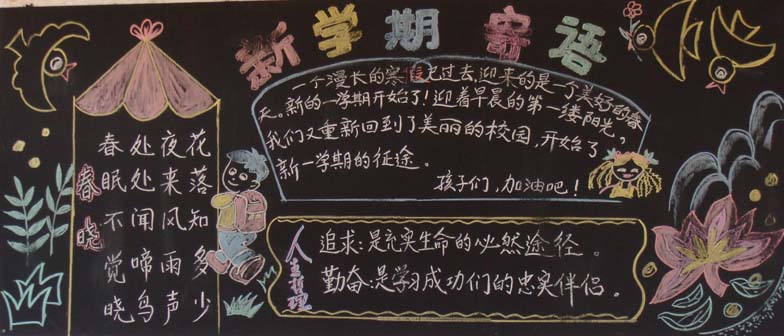 新学期寄语
春晓
春眠不觉晓
处处闻啼鸟
夜来风雨声
花落知多少
一个漫长的寒假已过去,迎来的是一个美好的春
天。新的一学期开始了!迎着早晨的第一缕阳光,
我们又重新回到了美丽的校园,开始了
新一学期的征途。
孩子们,加油吧!
人生哲理
追求:是充实生命的必然途径。
勤奋:是学习成功们的忠实伴侣。